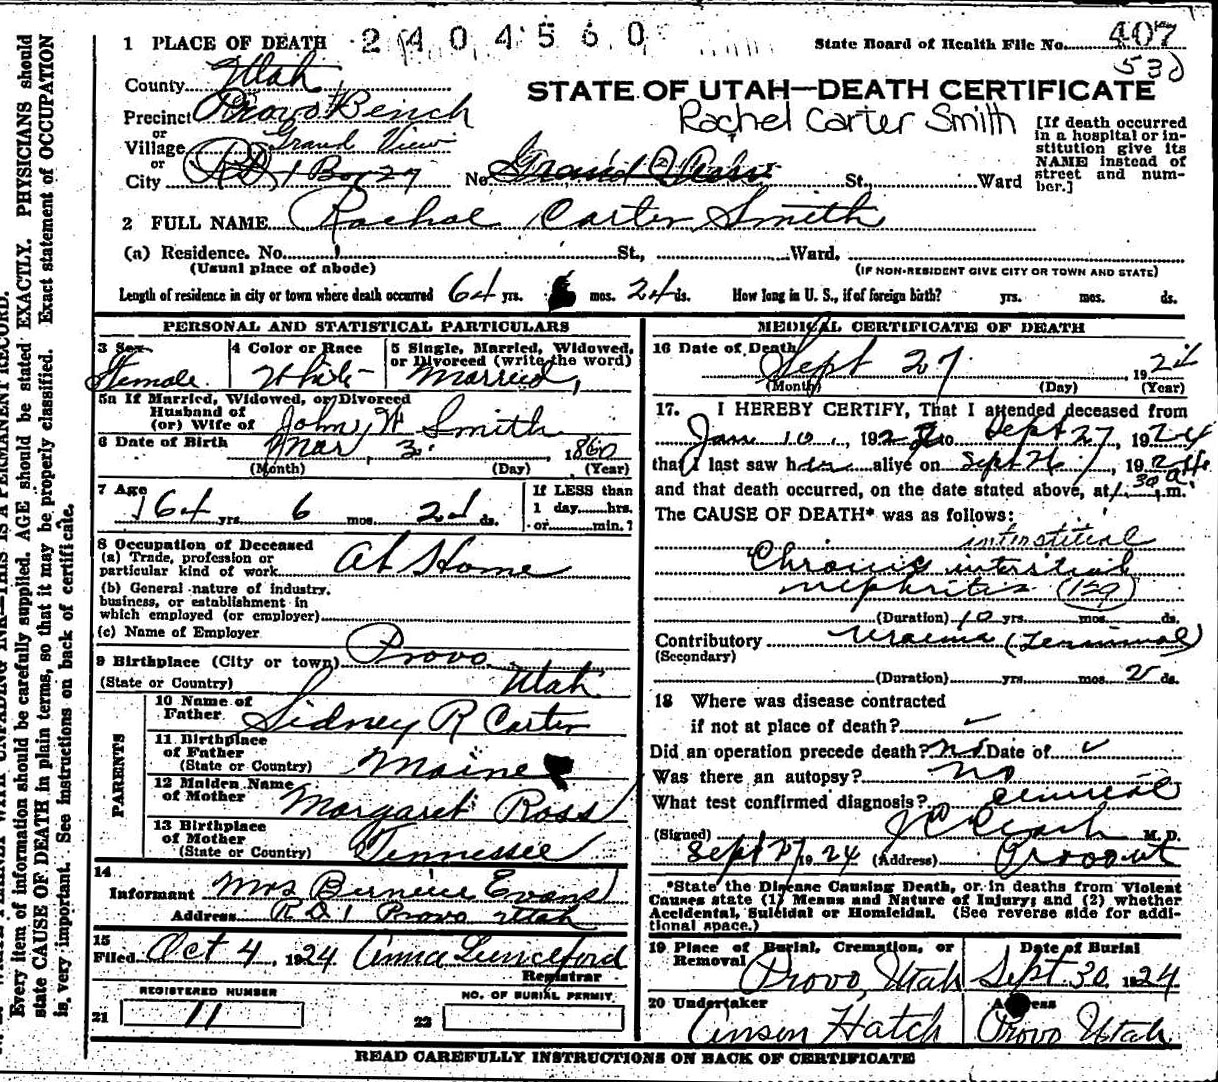 1 PLACE OF DEATH 2404560 State Board of Health File No. 407
530
County Utah
STATE OF UTAH—DEATH CERTIFICATE
Precinct Provo Bench
Rachel Carter Smith
or
Village Grand View
or
City RD 1 Box 27 No. Grand View St., Ward
[If death occurred
in a hospital or in-
stitution give its
NAME instead of
street and num-
ber.]
2 FULL NAME Rachael Carter Smith
(a) Residence. No. St., Ward.
(Usual place of abode) (IF NON-RESIDENT GIVE CITY OR TOWN AND STATE)
Length of residence in city or town where death occurred 64 yrs. 6 mos. 24 ds. How long in U. S., if of foreign birth? yrs. mos. ds.
PERSONAL AND STATISTICAL PARTICULARS
3 Sex Female
4 Color or Race White
5 Single, Married, Widowed,
or Divorced (write the word)
Married
5a If Married, Widowed, or Divorced
Husband of
(or) Wife of John W Smith
6 Date of Birth Mar 3 1860
(Month) (Day) (Year)
7 Age 64 yrs. 6 mos. 24 ds.
If LESS than
1 day hrs.
or min.?
8 Occupation of Deceased
(a) Trade, profession or
particular kind of work At Home
(b) General nature of industry,
business, or establishment in
which employed (or employer)
(c) Name of Employer
9 Birthplace (City or town) Provo
(State or Country) Utah
PARENTS
10 Name of
Father Sidney R Carter
11 Birthplace
of Father
(State or Country) Maine
12 Maiden Name
of Mother Margaret Ross
13 Birthplace
of Mother
(State or Country) Tennessee
14
Informant Mrs Berniece Evans
Address R D 1 Provo Utah
15
Filed Oct 4, 1924 Anna Lunceford
Registrar
REGISTERED NUMBER
21 11
NO. OF BURIAL PERMIT
22
MEDICAL CERTIFICATE OF DEATH
16 Date of Death Sept 27, 1924
(Month) (Day) (Year)
17. I HEREBY CERTIFY, That I attended deceased from
Jan 10, 192 to Sept 27, 1924
that I last saw her alive on Sept 26, 1924
and that death occurred, on the date stated above, at 1 30 a. m.
The CAUSE OF DEATH* was as follows:
interstitial
Chronic interstial
nephritis (129)
(Duration) 10 yrs. mos. ds.
Contributory Uraemia (Terminal)
(Secondary)
(Duration) yrs. mos. 2 ds.
18 Where was disease contracted
if not at place of death?
Did an operation precede death? no Date of
Was there an autopsy? no
What test confirmed diagnosis? clinical
(Signed) M. D.
Sept 27 1924 (Address) Provo Ut
*State the Disease Causing Death, or in deaths from Violent
Causes state (1) Means and Nature of Injury; and (2) whether
Accidental, Suicidal or Homicidal. (See reverse side for addi-
tional space.)
19 Place of Burial, Cremation, or
Removal
Provo, Utah
Date of Burial
Sept 30 1924
20 Undertaker
Anson Hatch
Address
Provo Utah
READ CAREFULLY INSTRUCTIONS ON BACK OF CERTIFICATE
Every item of information should be carefully supplied. AGE should be stated EXACTLY. PHYSICIANS should
state CAUSE OF DEATH in plain terms, so that it may be properly classified. Exact statement of OCCUPATION
is very important. See instructions on back of certificate.